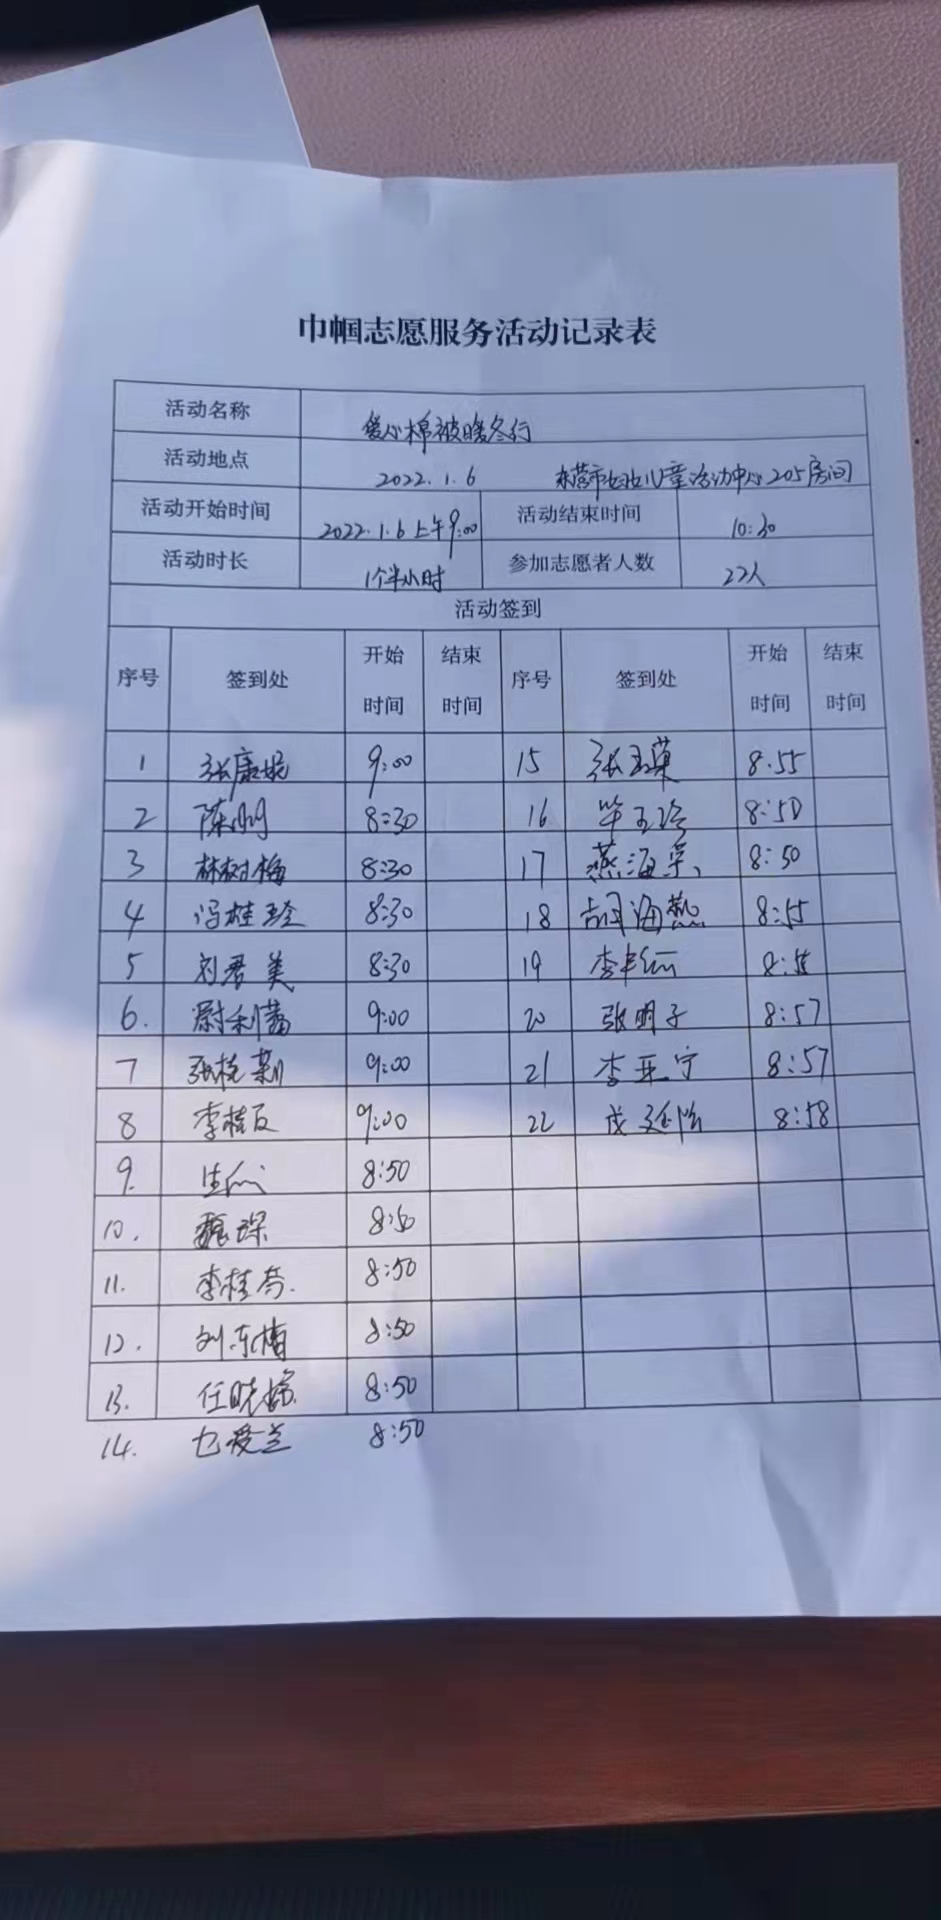 巾帼志愿服务活动记录表
活动名称 爱心棉被暖冬行
活动地点 2022.1.6 东营市妇女儿童活动中心205房间
活动开始时间 2022.1.6 上午9:00 活动结束时间 10:30
活动时长 1个半小时 参加志愿者人数 22人
活动签到
序号 签到处 开始时间 结束时间 序号 签到处 开始时间 结束时间
1 张康妮 9:00 15 张玉英 8:55
2 陈 8:30 16 毕玉珍 8:50
3 林树梅 8:30 17 燕海 8:50
4 冯桂玲 8:30 18 胡海燕 8:55
5 刘君美 8:30 19 李 8:55
6. 尉利 9:00 20 张明子 8:57
7 张桂 9:00 21 李亚宁 8:57
8 李桂 9:00 22 8:58
9. 8:50
10. 魏琛 8:50
11. 李桂芬. 8:50
12. 刘东梅 8:50
13. 任晓 8:50
14. 爱兰 8:50